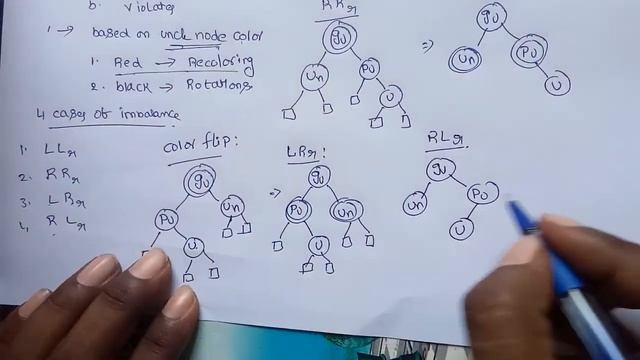 b. violates
1 → based on uncle node color
1. Red → Recoloring
2. black → Rotations
4 cases of imbalance
1. LLr
2. RRr
3. LRr
4. RLr
RRr
gu
un
pu
u
⇒
gu
un
pu
u
color flip:
gu
pu
un
u
⇒
LRr:
gu
pu
un
u
RLr.
gu
un
pu
u